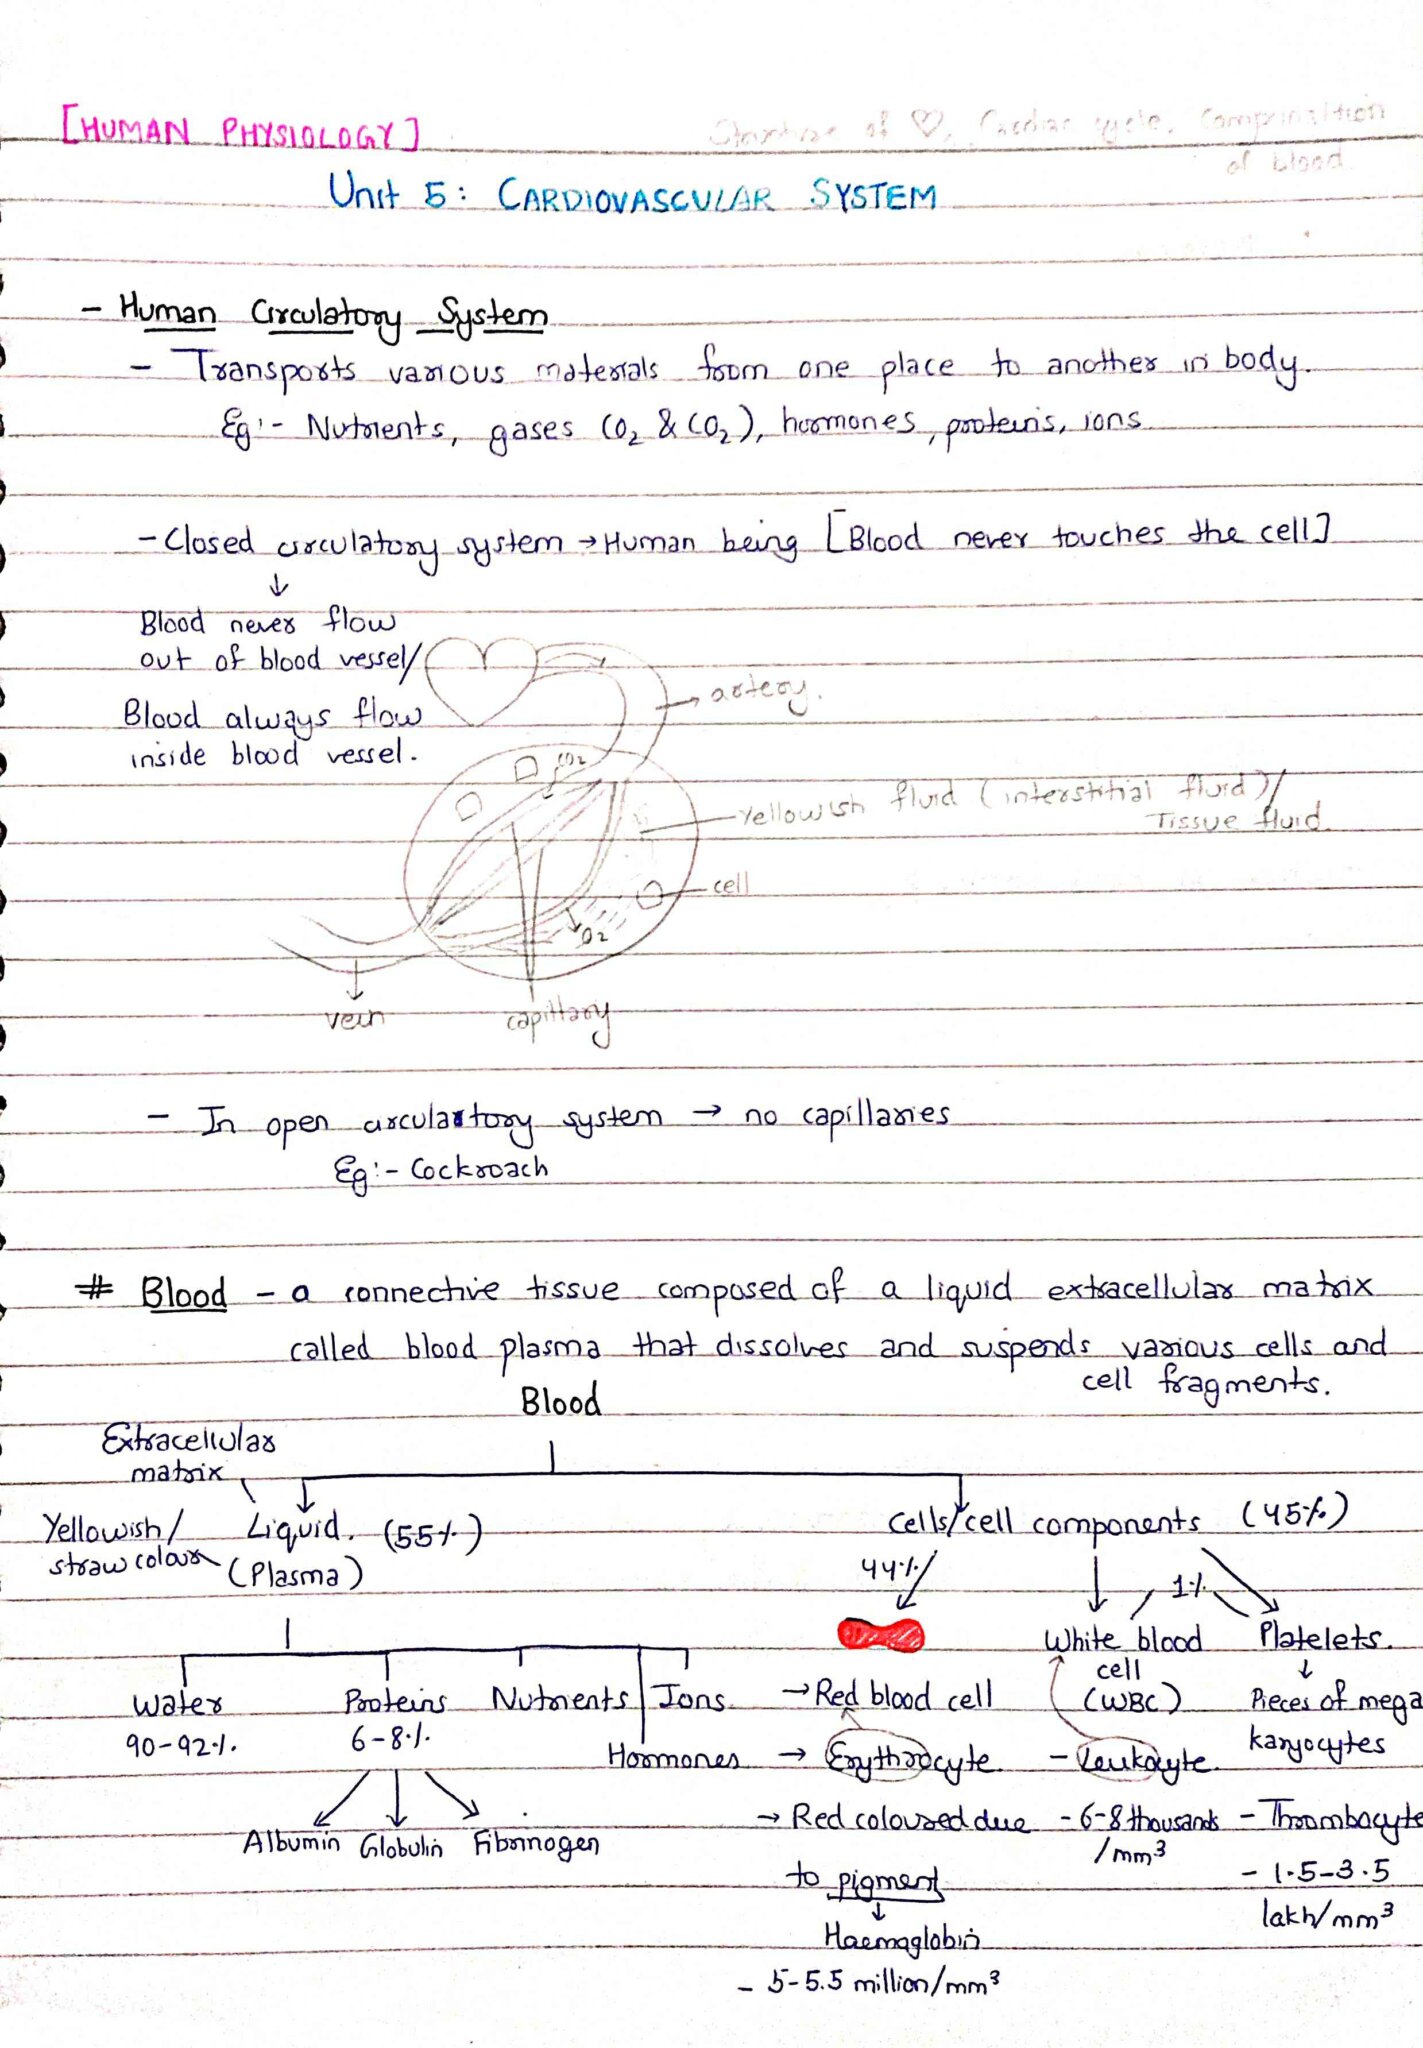 [HUMAN PHYSIOLOGY]
Structure of ♡, Cardiac cycle, Comprinsition
of blood
Unit 5: CARDIOVASCULAR SYSTEM
- Human Circulatory System
- Transports various materials from one place to another in body.
Eg:- Nutrients, gases (O2 & CO2), hormones, proteins, ions
- Closed circulatory system → Human being [Blood never touches the cell]
↓
Blood never flow
out of blood vessel/
Blood always flow
inside blood vessel.
→ artery.
CO2
Yellowish fluid (interstitial fluid)/
Tissue fluid
cell
O2
vein
capillary
- In open circulartory system → no capillaries
Eg:- Cockroach
# Blood - a connective tissue composed of a liquid extracellular matrix
called blood plasma that dissolves and suspends various cells and
cell fragments.
Blood
Extracellular
matrix
Yellowish/
straw colour
Liquid. (55%)
(Plasma)
Cells/cell components (45%)
44%
1%
Water
90-92%.
Proteins
6-8%.
Nutrients
Ions
Hormones
Albumin Globulin Fibrinogen
→ Red blood cell
→ Erythrocyte
→ Red coloured due
to pigment
↓
Haemaglobin
- 5-5.5 million/mm³
White blood
cell
(WBC)
- Leukocyte.
- 6-8 thousands
/mm³
Platelets.
↓
Pieces of mega
karyocytes
- Thrombocyte
- 1.5-3.5
lakh/mm³